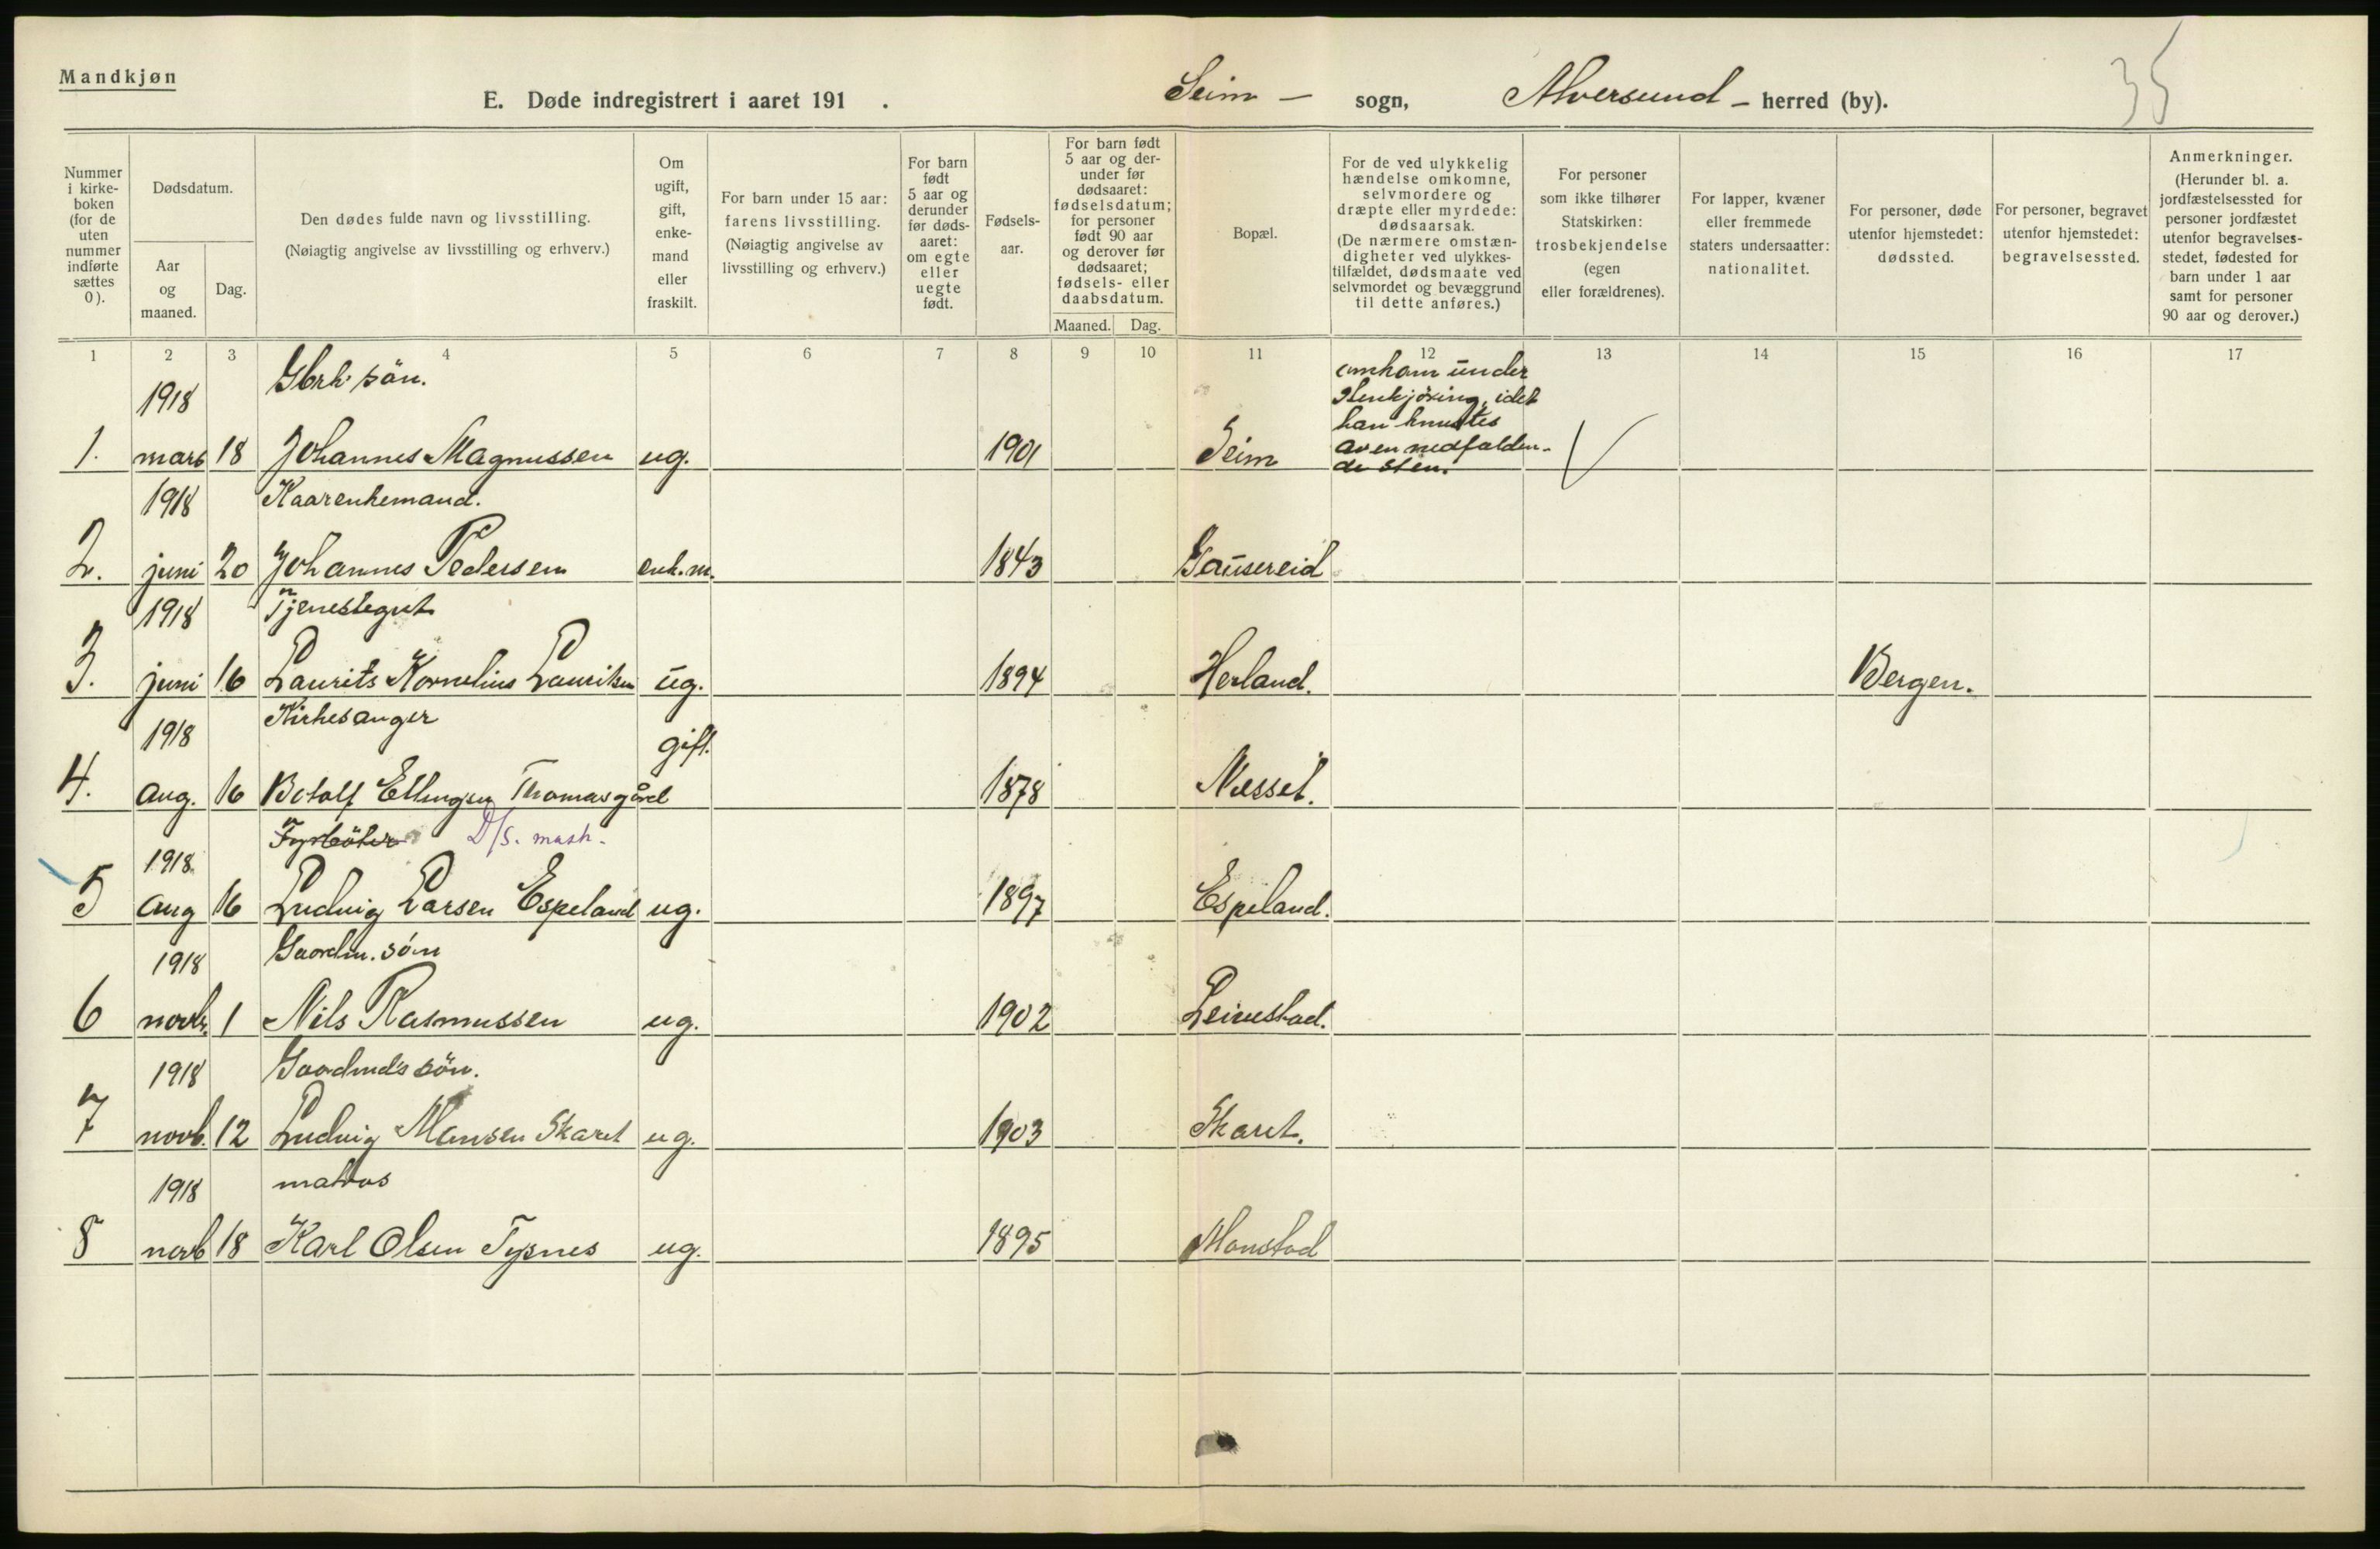 Mandkjøn
35
E. Døde indregistrert i aaret 191 . Seim – sogn, Alversund – herred (by).
Nummer i kirke- boken (for de uten nummer indførte sættes 0).
Dødsdatum.
Aar og maaned.
Dag.
Den dødes fulde navn og livsstilling.
(Nøiagtig angivelse av livsstilling og erhverv.)
Om ugift, gift, enke- mand eller fraskilt.
For barn under 15 aar: farens livsstilling. (Nøiagtig angivelse av livsstilling og erhverv.)
For barn født 5 aar og derunder før døds- aaret: om egte eller uegte født.
Fødsels- aar.
For barn født 5 aar og der- under før dødsaaret: fødselsdatum; for personer født 90 aar og derover før dødsaaret; fødsels- eller daabsdatum.
Maaned. Dag.
Bopæl.
For de ved ulykkelig hændelse omkomne, selvmordere og dræpte eller myrdede: dødsaarsak. (De nærmere omstæn- digheter ved ulykkes- tilfældet, dødsmaate ved selvmordet og bevæggrund til dette anføres.)
For personer som ikke tilhører Statskirken: trosbekjendelse (egen eller forældrenes).
For lapper, kvæner eller fremmede staters undersaatter: nationalitet.
For personer, døde utenfor hjemstedet: dødssted.
For personer, begravet utenfor hjemstedet: begravelsessted.
Anmerkninger. (Herunder bl. a. jordfæstelsessted for personer jordfæstet utenfor begravelses- stedet, fødested for barn under 1 aar samt for personer 90 aar og derover.)
1 2 3 4 5 6 7 8 9 10 11 12 13 14 15 16 17
1918 Gbrk. sön.
omkom under
Stenkjöring, idet
han knustes
av en nedfalden-
de sten.
1. mars 18 Johannes Magnussen ug. 1901 Seim
1918 Kaarenkemand.
2. juni 20 Johannes Pedersen enk.m. 1843 Gausereid
1918 Tjenestegut
3. juni 16 Laurits Kornelius Lauritsen ug. 1894 Herland. Bergen.
1918 Kirkesanger gift.
4. aug. 16 Botolf Ellingsen Thomasgård 1878 Nesset.
1918 Fyrböter D/s. mask.
5 aug 16 Ludvig Larsen Espeland ug. 1897 Espeland.
1918 Gaardm. sön
6 novb. 1 Nils Rasmussen ug. 1902 Leirestad.
1918 Gaardmds sön.
7 novb. 12 Ludvig Monsen Skaret ug. 1903 Skaret.
1918 matros
8 novb 18 Karl Olsen Tysnes ug. 1895 Monstad